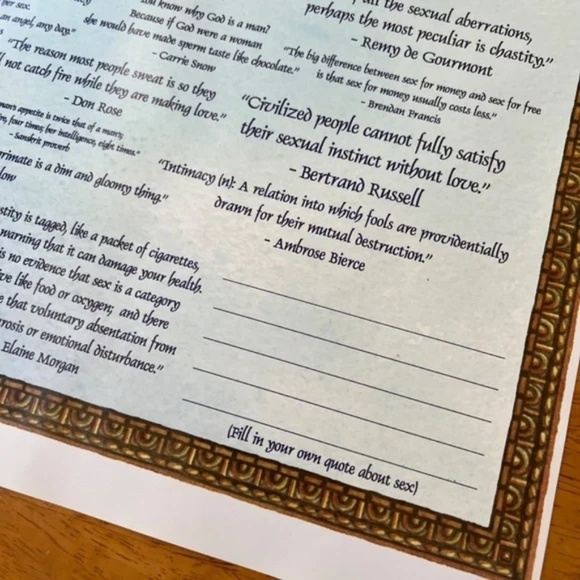 per sex.
an angel, any day."
know why God is a man?
Because if God were a woman
she would have made sperm taste like chocolate."
- Carrie Snow
all the sexual aberrations,
perhaps the most peculiar is chastity."
- Remy de Gourmont
"The big difference between sex for money and sex for free
is that sex for money usually costs less."
- Brendan Francis
"The reason most people sweat is so they
not catch fire while they are making love."
- Don Rose
"Civilized people cannot fully satisfy
their sexual instinct without love."
- Bertrand Russell
appetite is twice that of a man's;
four times; her intelligence, eight times."
- Sanskrit proverb
rimate is a dim and gloomy thing."
low
"Intimacy (n): A relation into which fools are providentially
drawn for their mutual destruction."
- Ambrose Bierce
stity is tagged, like a packet of cigarettes,
warning that it can damage your health.
is no evidence that sex is a category
ive like food or oxygen; and there
e that voluntary absentation from
rosis or emotional disturbance."
Elaine Morgan
(Fill in your own quote about sex)